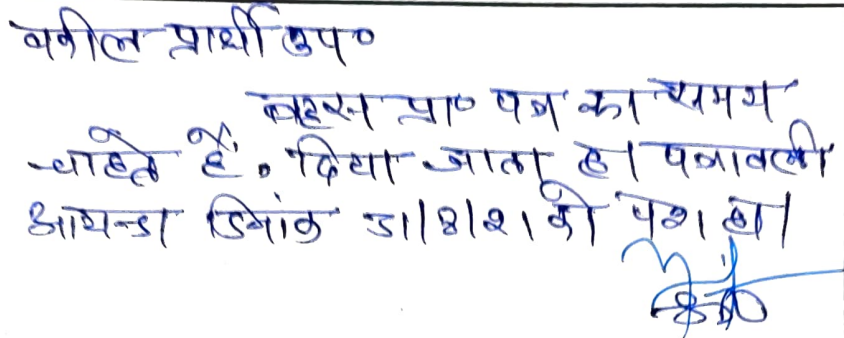 वकील प्रार्थी उप०
बहस प्रा० पत्र का समय
चाहते हैं, दिया जाता है। पत्रावली
आयन्दा दिनांक 31/8/21 को पेश हो।